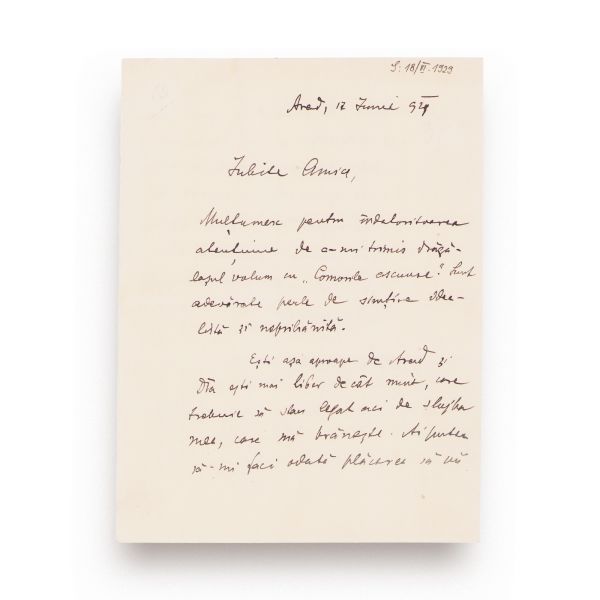 S: 18/VI-1929
Arad, 12 Iunie 929
Iubite Amice,
Mulţumesc pentru îndatoritoarea
atenţiune de a-mi trimis drăgă-
laşul volum cu „Comorile ascunse". Sunt
adevărate perle de simţire idea-
listă şi neprihănită.
Eşti aşa aproape de Arad şi
Dta eşti mai liber decât mine, care
trebuie să stau legat aci de slujba
mea, care mă hrăneşte. Ai putea
să-mi faci odată plăcerea să vă